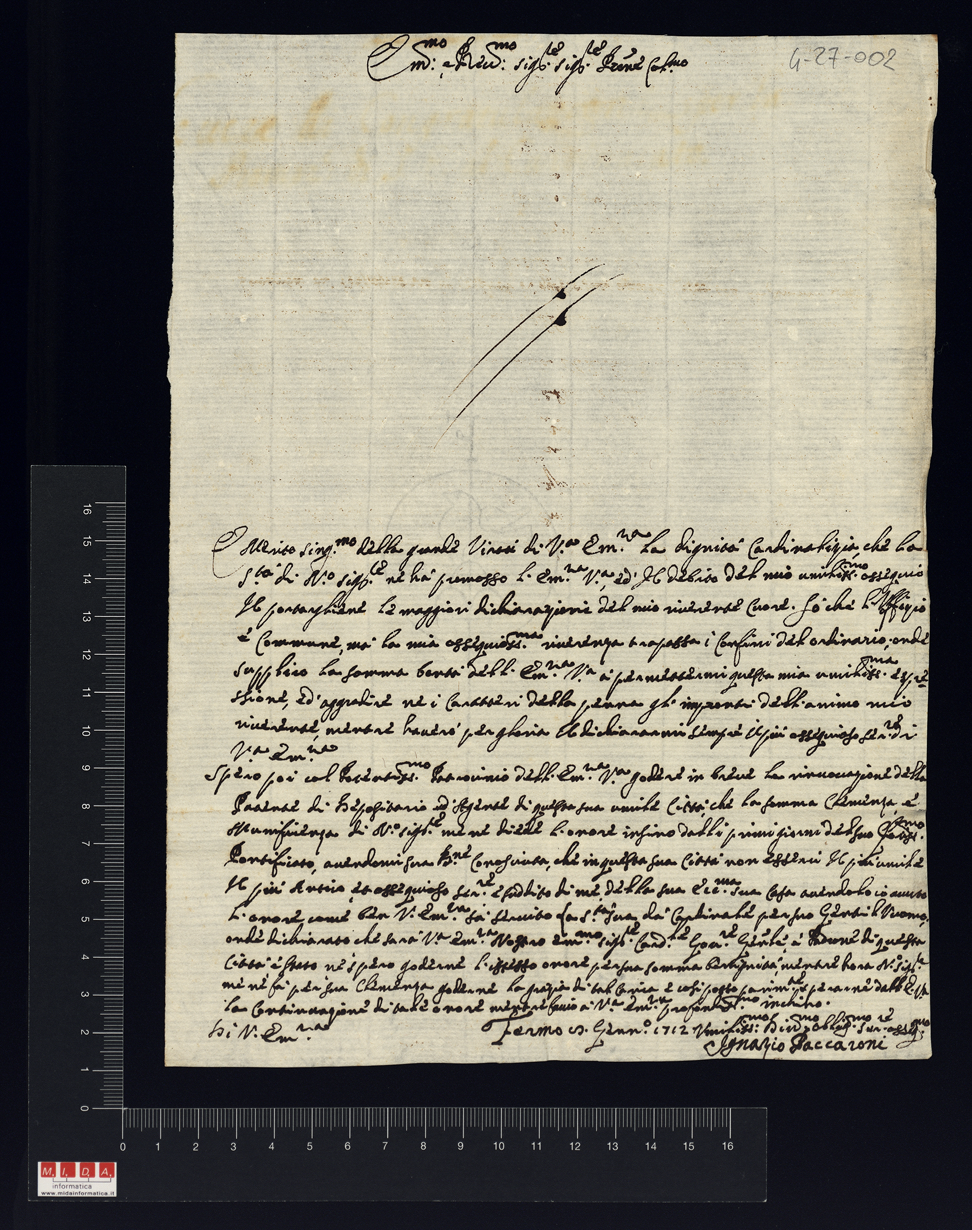 Em.mo e Rev.mo Sig.re Sig.re Prone Col.mo
4-27-002
Merito sing.mo della grande Virtù di V.ra Em.nza la dignità Cardinalizia, che la
S.tà di N.o Sig.re ne hà promosso l'Em.nza V.ra ed' Il debito del mio umiliss.mo ossequio
Il portarglene le maggiori dichiarazioni del mio riverente Cuore. Sò che l'Uffizio
è Commune, mà la mia ossequios.ma riverenza trapassa i Confini del ordinario; onde
supplico la somma bontà dell' Em.nza V.ra à permettermi questa mia umiliss.ma espre
ssione, ed' aggradire ne i Caratteri della penna gl' impronti dell' animo mio
riverente, mentre haverò per gloria Il dichiararmi sempre Il più ossequioso Ser.re di
V.ra Em.nza
Spero poi col Potentiss.mo Patrocinio dell' Em.nza V.ra godere in breve la rinovazione della
Patente di Depositario ed' Agente di questa sua umile Città che la somma Clemenza, e
Munificenza di N.o Sig.re me ne diede l'onore insino dalli primi giorni del suo
Pontificato, avendomi sua B.ne Conosciuto, che in questa sua Città non esservi Il più umile
Il più et ossequioso Ser.re e suddito di me, della sua Ecc.ma sua Casa avendolo io avuto
l'onore come ben V. Em.nza sà servito S.tà Sua, da Cardinale per suo Gentil'Uomo,
onde dichiarato che sarà V.ra Em.nza Nostro Em.mo Sig.re Card.le Gov.re Gen.le e Prone di questa
Città e Stato ne spero goderne l'istesso onore per sua somma benignità, mentre hora N. Sig.re
me ne fà per sua Clemenza godere la grazia di tal Carica, e
la Continuazione di tale onore mentre faccio à V.ra Em.nza inchino.
Di V. Em.nza
Fermo Genn.o 1712 Umiliss.mo Dev.mo obblig.mo Ser.re osseq.mo
Ignazio Paccaroni
16 15 14 13 12 11 10 9 8 7 6 5 4 3 2 1 0
0 1 2 3 4 5 6 7 8 9 10 11 12 13 14 15 16
M. I. D. A.
informatica
www.midainformatica.it